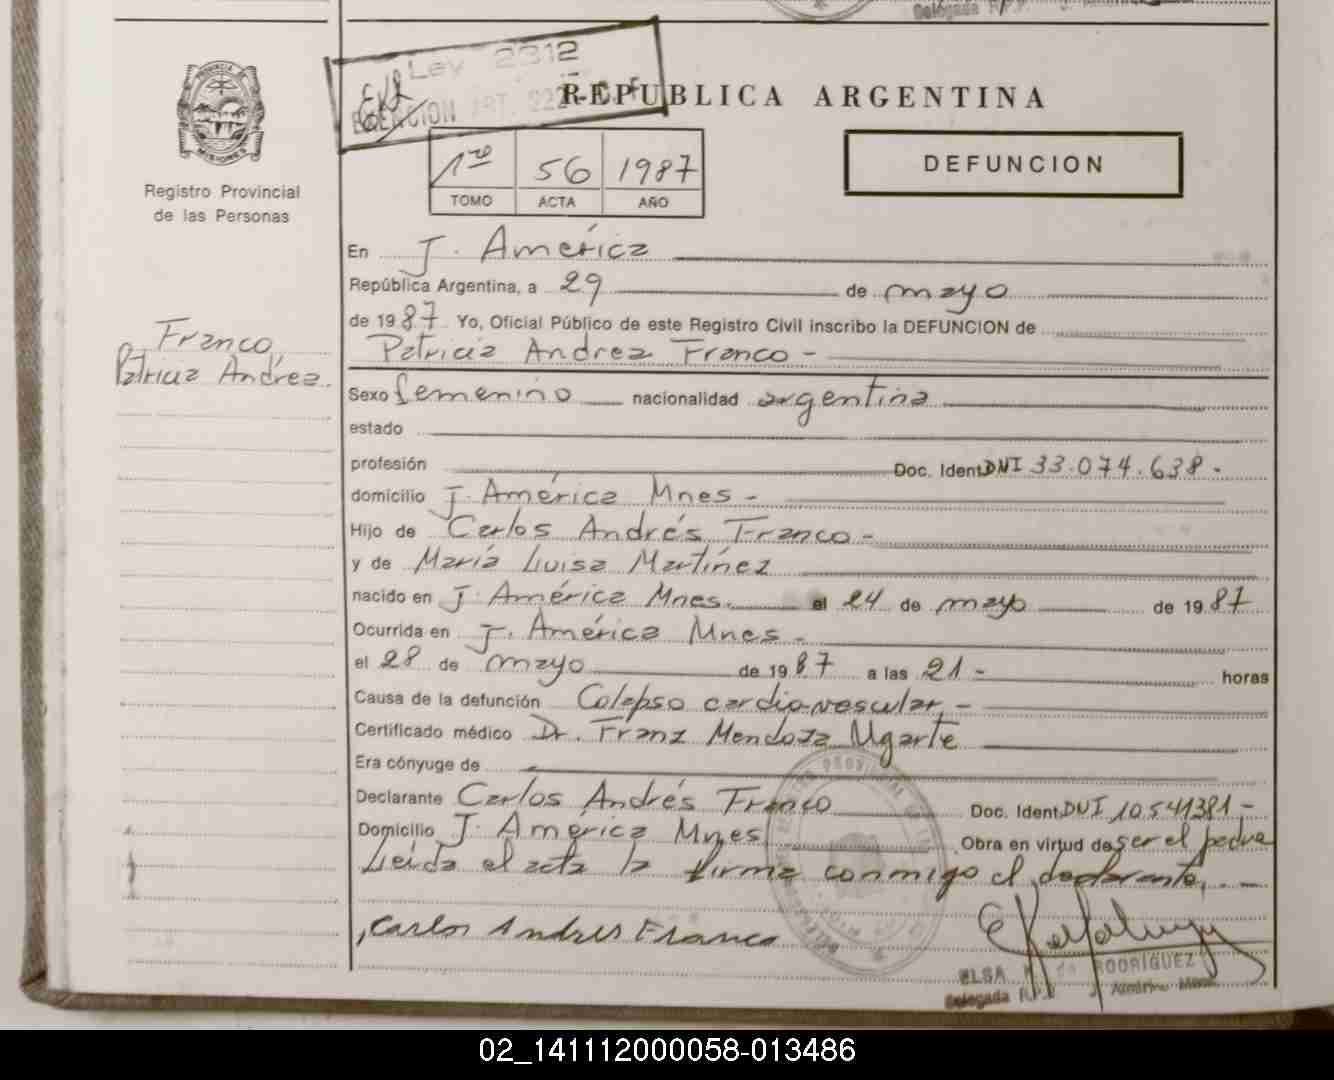 Ley 2312
REPUBLICA ARGENTINA
PROVINCIA DE
MISIONES
Registro Provincial
de las Personas
1ro 56 1987
TOMO ACTA AÑO
DEFUNCION
En J. América
República Argentina, a 29 de mayo
de 1987 Yo, Oficial Público de este Registro Civil inscribo la DEFUNCION de
Franco,
Patricia Andréa.
Patricia Andrea Franco -
Sexo femenino nacionalidad argentina
estado
profesión Doc. Ident DNI 33.074.638.
domicilio J. América Mnes -
Hijo de Carlos Andrés Franco -
y de María Luisa Martínez
nacido en J. América Mnes. el 24 de mayo de 1987
Ocurrida en J. América Mnes -
el 28 de mayo de 1987 a las 21 - horas
Causa de la defunción Colapso cardio-vascular. -
Certificado médico Dr. Franz Mendoza Ugarte
Era cónyuge de
Declarante Carlos Andrés Franco Doc. Ident. DNI 10.541381 -
Domicilio J. América Mnes Obra en virtud de ser el padre
Leída el acta la firma conmigo el declarante. -
Carlos Andres Franco
ELSA RODRIGUEZ
Delegada
02_141112000058-013486